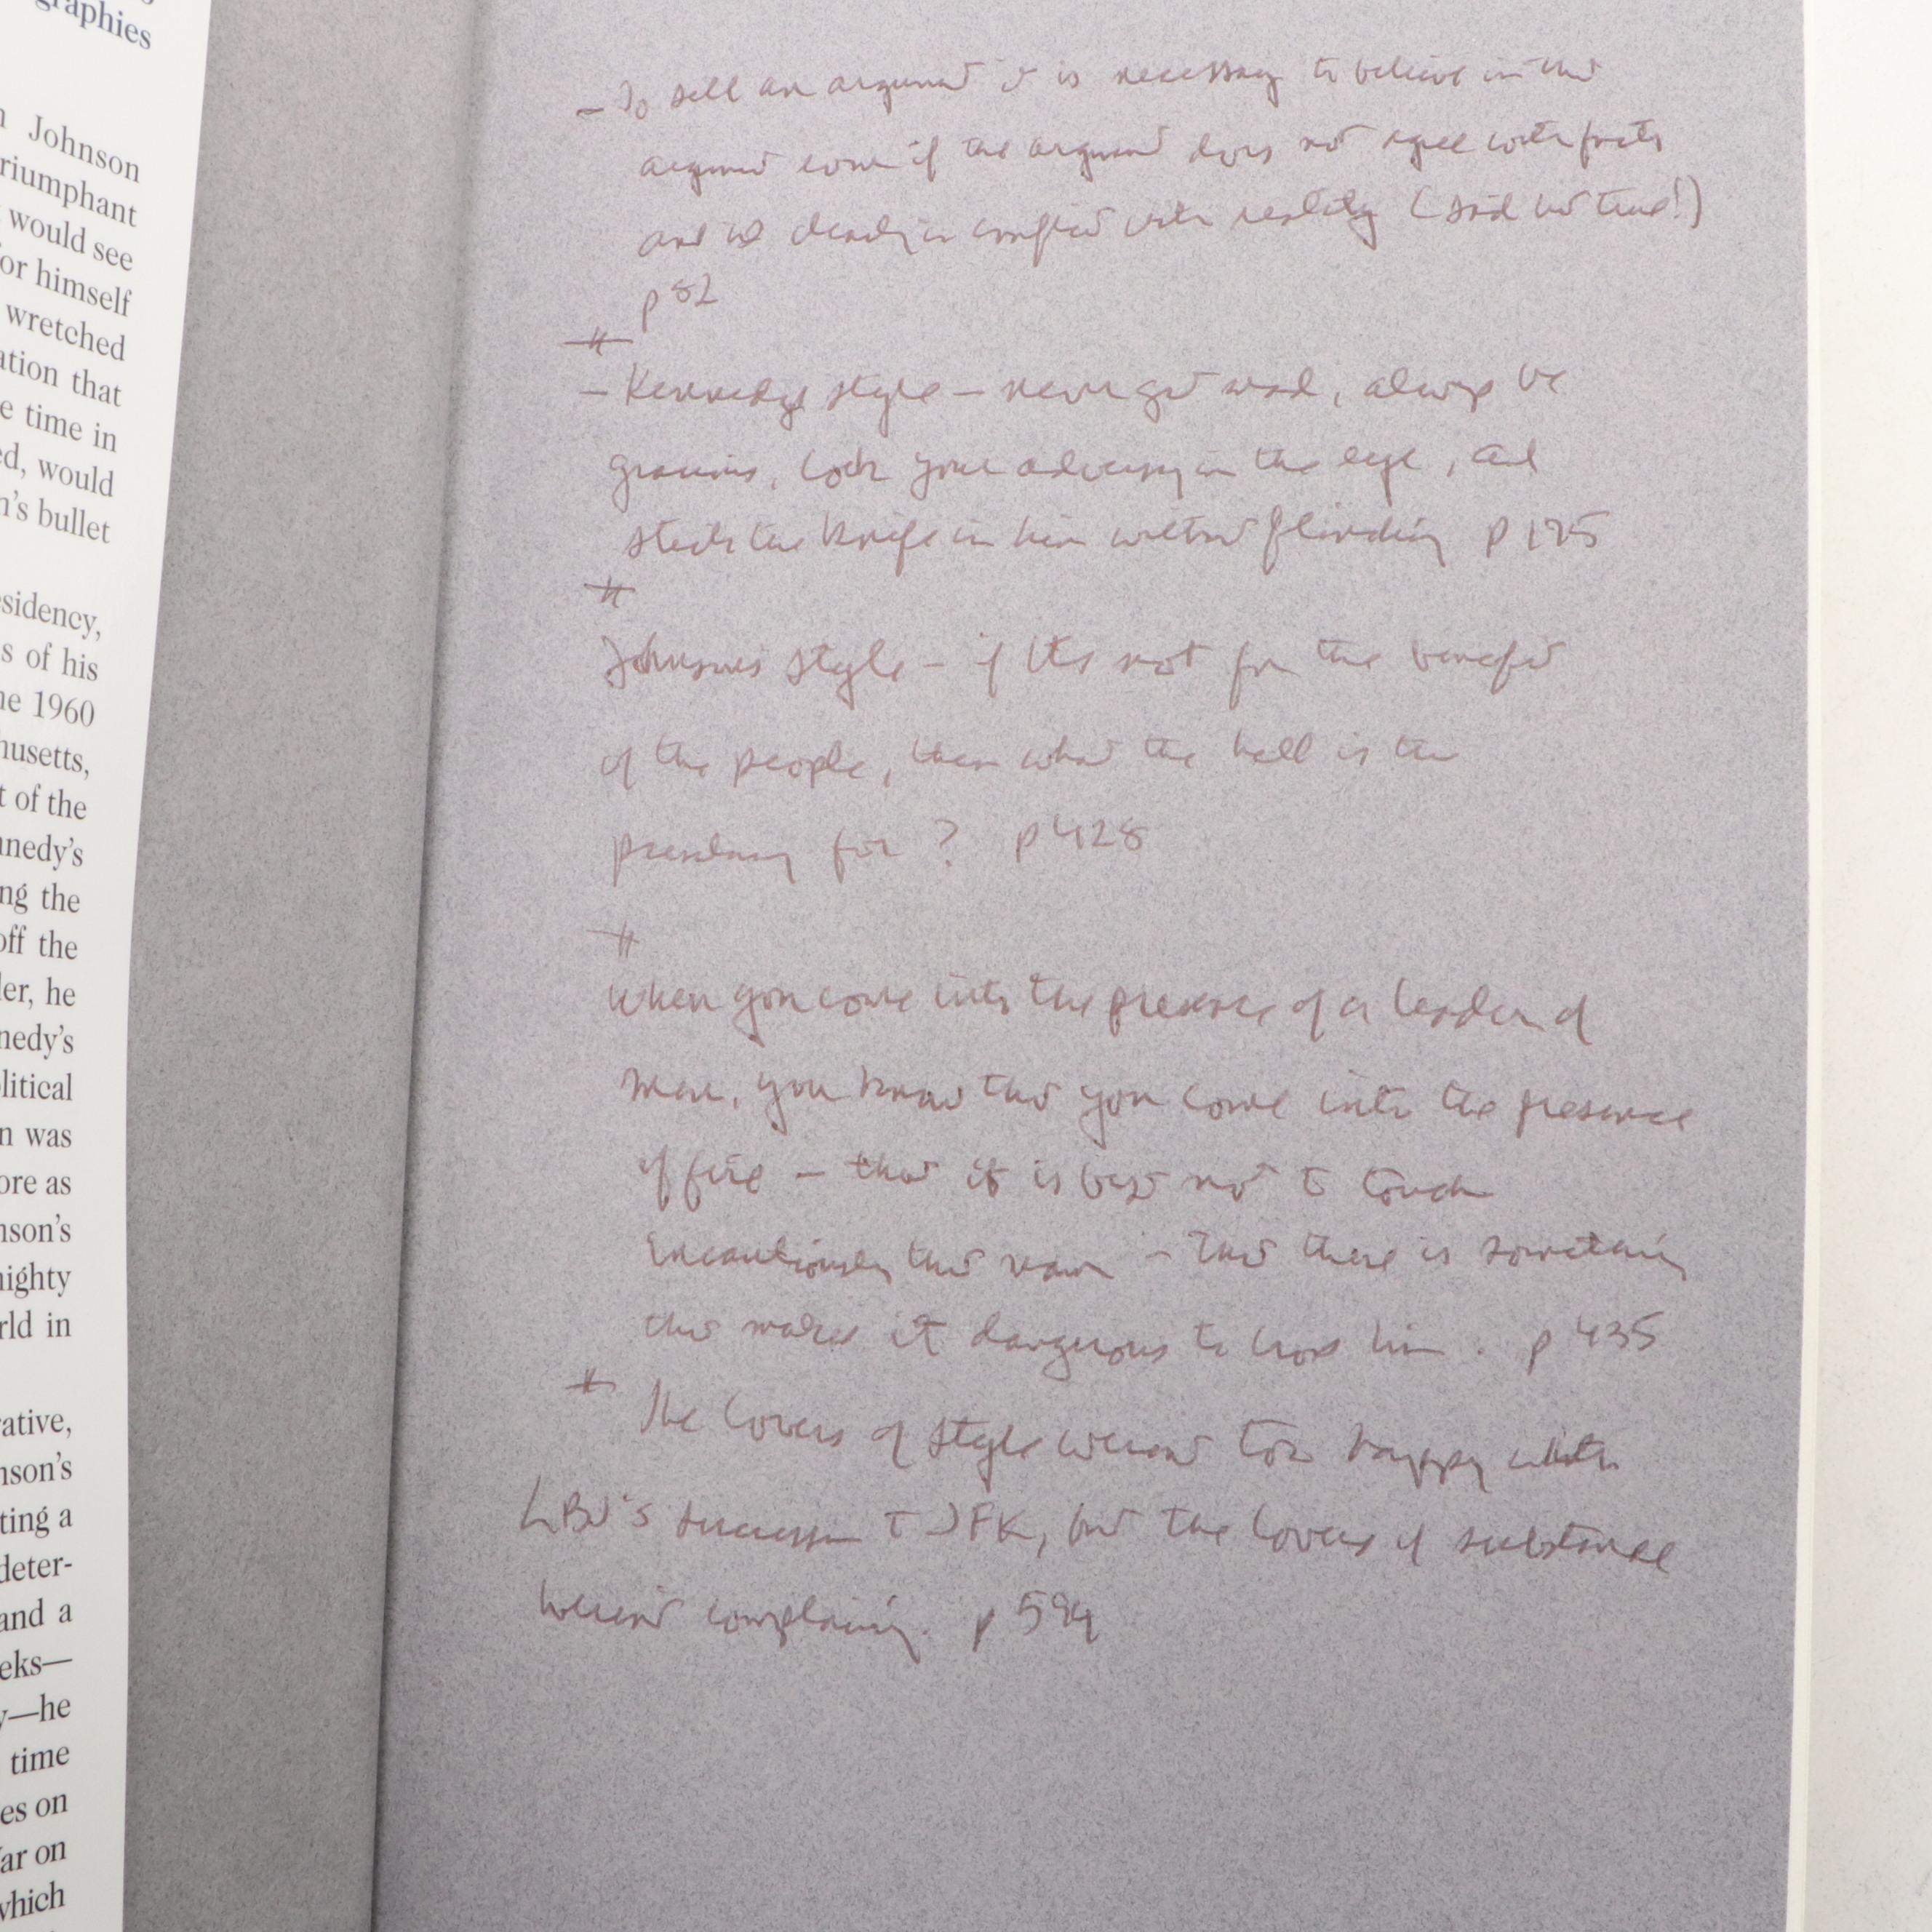 graphies
Johnson
riumphant
would see
for himself
wretched
ation that
e time in
ed, would
n's bullet
sidency,
s of his
he 1960
husetts,
t of the
nnedy's
ng the
off the
ler, he
nedy's
litical
n was
ore as
nson's
nighty
rld in
rative,
nson's
ting a
deter-
and a
eeks—
y—he
time
es on
Var on
which
— To sell an argument it is necessary to believe in the
argument even if the argument does not agree with facts
and is clearly in conflict with reality (sad but true!)
p 82
— Kennedys style — never get mad, always be
gracious, look your adversary in the eye, and
stick the knife in him without flinching p 175
Johnsons style — if its not for the benefit
of the people, then what the hell is the
presidency for? p 428
When you come into the presence of a leader of
men, you know that you come into the presence
of fire — that it is best not to touch
incautiously that man — that there is something
that makes it dangerous to cross him. p 435
The lovers of style weren't too happy with
LBJ's succession to JFK, but the lovers of substance
weren't complaining. p 594